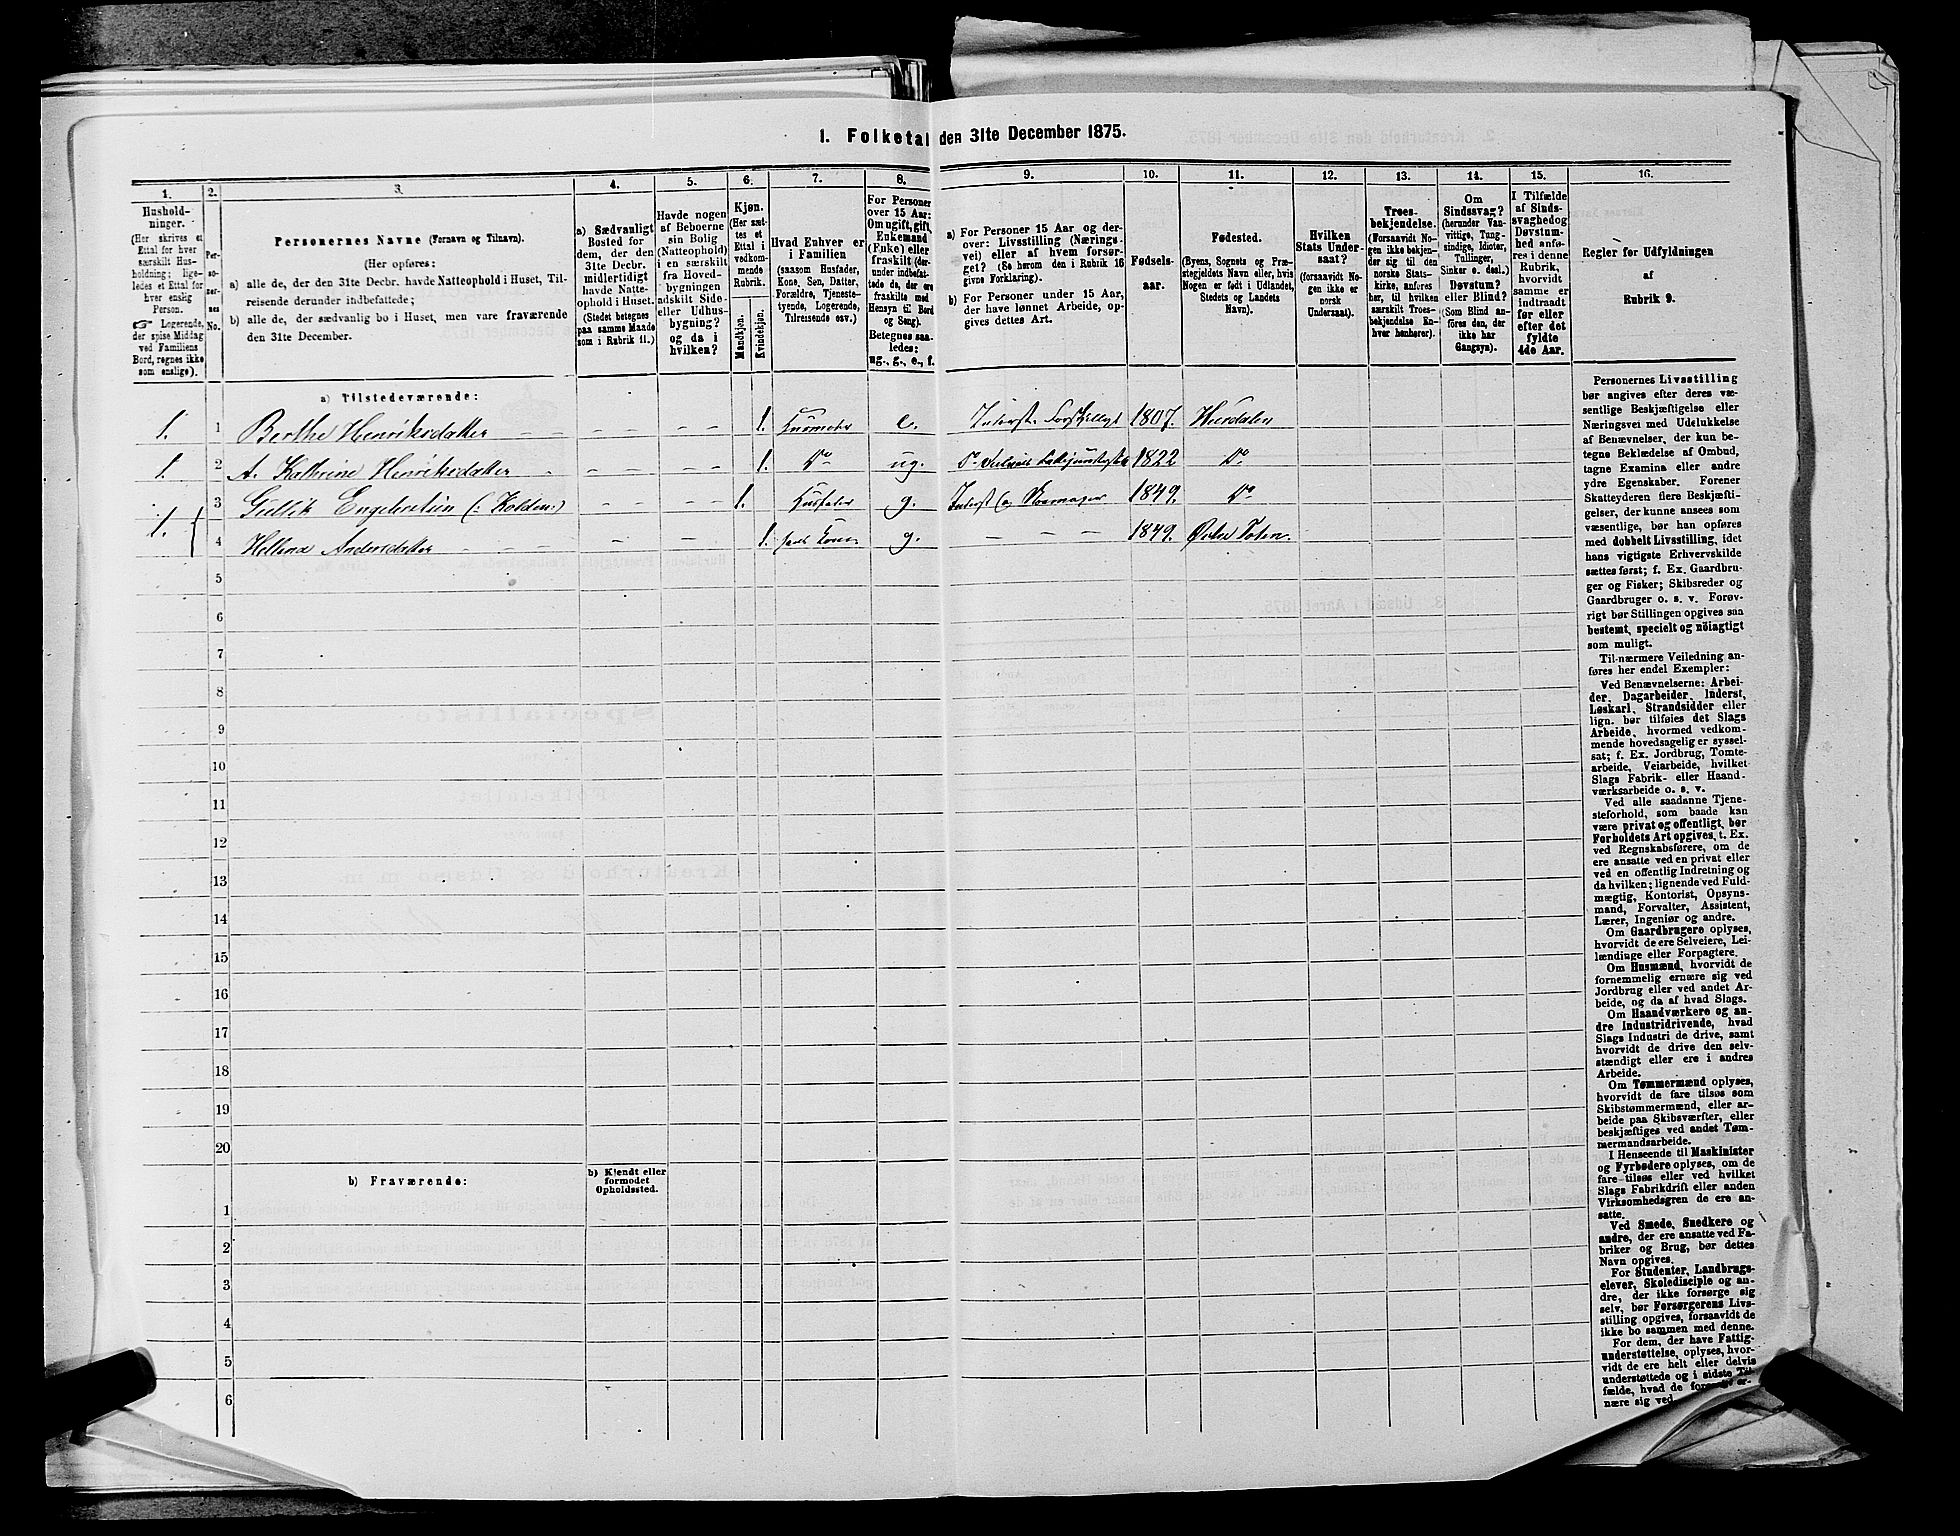 1. Folketal den 31te December 1875.
1.
Hushold-
ninger.
(Her skrives et
Ettal for hver
særskilt Hus-
holdning; lige-
ledes et Ettal for
hver enslig
Person.
☞ Logerende,
der spise Middag
ved Familiens
Bord, regnes ikke
som enslige).
2.
Per-
so-
ner-
nes
No.
3.
Personernes Navne (Fornavn og Tilnavn).
(Her opføres:
a) alle de, der den 31te Decbr. havde Natteophold i Huset, Til-
reisende derunder indbefattede;
b) alle de, der sædvanlig bo i Huset, men vare fraværende
den 31te December.
4.
a) Sædvanligt
Bosted for
dem, der den
31te Decbr.
midlertidigt
havde Natte-
ophold i Huset.
(Stedet betegnes
paa samme Maade
som i Rubrik 11.)
5.
Havde nogen
af Beboerne
sin Bolig
(Natteophold)
i en særskilt
fra Hoved-
bygningen
adskilt Side-
eller Udhus-
bygning?
og da i
hvilken?
6.
Kjøn.
(Her sæt-
tes et
Ettal i
vedkom-
mende
Rubrik.
Mandkjøn.
Kvindekjøn.
7.
Hvad Enhver er
i Familien
(saasom Husfader,
Kone, Søn, Datter,
Forældre, Tjeneste-
tyende, Logerende,
Tilreisende osv.)
8.
For Personer
over 15 Aar:
Om ugift, gift,
Enkemand
(Enke) eller
fraskilt (der-
under indbefat-
tede da, der ere
fraskilte med
Hensyn til Bord
og Seng).
Betegnes saa-
ledes:
ug., g., e., f.
9.
a) For Personer 15 Aar og der-
over: Livsstilling (Nærings-
vei) eller af hvem forsør-
get? (Se herom den i Rubrik 16
givne Forklaring).
b) For Personer under 15 Aar,
der have lønnet Arbeide, op-
gives dettes Art.
10.
Fødsels-
aar.
11.
Fødested.
(Byens, Sognets og Præ-
stegjeldets Navn eller, hvis
Nogen er født i Udlandet,
Stedets og Landets
Navn).
12.
Hvilken
Stats Under-
saat?
(forsaavidt No-
gen ikke er
norsk
Undersaat).
13.
Troes-
bekjendelse.
(Forsaavidt No-
gen ikke bekjen-
der sig til den
norske Stats-
kirke, anføres
her, til hvilken
særskilt Troes-
bekjendelse En-
hver henhører).
14.
Om
Sindssvag?
(herunder Van-
vittige, Tung-
sindige, Idioter,
Tullinger,
Sinker o. desl.)
Døvstum?
eller Blind?
(Som Blind an-
føres den, der
ikke har
Gangsyn).
15.
I Tilfælde
af Sinds-
svaghed og
Døvstum-
hed anfø-
res i denne
Rubrik,
hvorvidt
samme er
indtraadt
før eller
efter det
fyldte
4de Aar.
16.
Regler før Udfyldningen
af
Rubrik 9.
a) Tilstedeværende:
1. 1 Berthe Henriksdatter – – – – 1. Husmoder e. Inderst. 1807. Hurdalen
1. 2 A. Kathrine Henriksdatter – – – – 1. Do ug. 1822 Do
1. { 3 Gullik Engebretsen (: Kolden :) – – – 1. Husfader g. Inderst og Skomager 1849. Do
4 Hellene Andersdatter – – – – 1. hans Kone g. – – – 1849. Østre Toten.
5
6
7
8
9
10
11
12
13
14
15
16
17
18
19
20
b) Fraværende:
b) Kjendt eller
formodet
Opholdssted.
1
2
3
4
5
6
Personernes Livsstilling
bør angives efter deres væ-
sentlige Beskjæftigelse eller
Næringsvei med Udelukkelse
af Benævnelser, der kun be-
tegne Beklædelse af Ombud,
tagne Examina eller andre
ydre Egenskaber. Forener
Skatteyderen flere Beskjæfti-
gelser, der kunne ansees som
væsentlige, bør han opføres
med dobbelt Livsstilling, idet
hans vigtigste Erhvervskilde
sættes først; f. Ex. Gaardbru-
ger og Fisker; Skibsreder og
Gaardbruger o. s. v. Forøv-
rigt bør Stillingen opgives saa
bestemt, specielt og nöiagtigt
som muligt.
Til nærmere Veiledning an-
føres her endel Exempler:
Ved Benævnelserne: Arbei-
der, Dagarbeider, Inderst,
Løskarl, Strandsidder eller
lign. bør tilføies det Slags
Arbeide, hvormed vedkom-
mende hovedsagelig er syssel-
sat; f. Ex. Jordbrug, Tomte-
arbeide, Veiarbeide, hvilket
Slags Fabrik- eller Haand-
værksarbeide o. s. v.
Ved alle saadanne Tjene-
steforhold, som baade kan
være privat og offentligt, bør
Forholdets Art opgives, t. Ex.
ved Regnskabsførere, om de
ere ansatte ved en privat eller
ved en offentlig Indretning og
da hvilken; lignende ved Fuld-
mægtig, Kontorist, Opsyns-
mand, Forvalter, Assistent,
Lærer, Ingeniør og andre.
Om Gaardbrugere oplyses,
hvorvidt de ere Selveiere, Lei-
lændinge eller Forpagtere.
Om Husmænd, hvorvidt de
fornemmelig ernære sig ved
Jordbrug eller ved andet Ar-
beide, og da af hvad Slags.
Om Haandværkere og an-
dre Industridrivende, hvad
Slags Industri de drive, samt
hvorvidt de drive den selv-
stændigt eller ere i andres
Arbeide.
Om Tømmermænd oplyses,
hvorvidt de fare tilsøs som
Skibstømmermænd, eller ar-
beide paa Skibsværfter, eller
beskjæftiges ved andet Tøm-
mermandsarbeide.
I Henseende til Maskinister
og Fyrbødere oplyses, om de
fare tilsøs eller ved hvilket
Slags Fabrikdrift eller anden
Virksomhedsgren de ere an-
satte.
Ved Smede, Snedkere og
andre, der ere ansatte ved Fa-
briker og Brug, bør dettes
Navn opgives.
For Studenter, Landbrugs-
elever, Skoledisciple og an-
dre, der ikke forsørge sig
selv, bør Forsørgerens Livs-
stilling opgives, forsaavidt de
ikke bo sammen med denne.
For dem, der have Fattig-
understøttelse, oplyses, hvor-
vidt de ere helt eller delvis
understøttede og i sidste Til-
fælde, hvad de forøvrigt er-
nære sig ved.